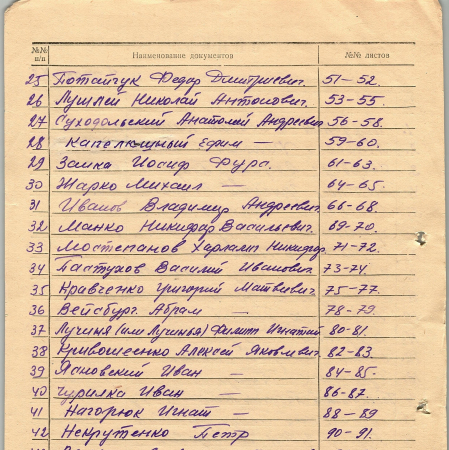 №№ п/п Наименование документов №№ листов
25 Потайчук Федор Дмитриевич. 51-52.
26 Лушпей Николай Антонович. 53-55.
27 Суходольский Анатолий Андреевич 56-58.
28 Капелюшный Ефим — 59-60.
29 Заика Иосиф Фура. 61-63.
30 Жарко Михаил — 64-65.
31 Иванов Владимир Андреевич. 66-68.
32 Манко Никифор Васильевич. 69-70.
33 Мостепанов Харлампий Никифор. 71-72.
34 Пастухов Василий Иванович. 73-74.
35 Кравченко Григорий Матвеевич. 75-77.
36 Вейсбург. Абрам — 78-79.
37 Лучина (или Лучинья) Филипп Игнатий 80-81.
38 Кривошеенко Алексей Яковлевич. 82-83.
39 Яновский Иван — 84-85.
40 Чурилка Иван — 86-87.
41 Нагорюк Игнат — 88-89
42 Некрутенко Петр 90-91.